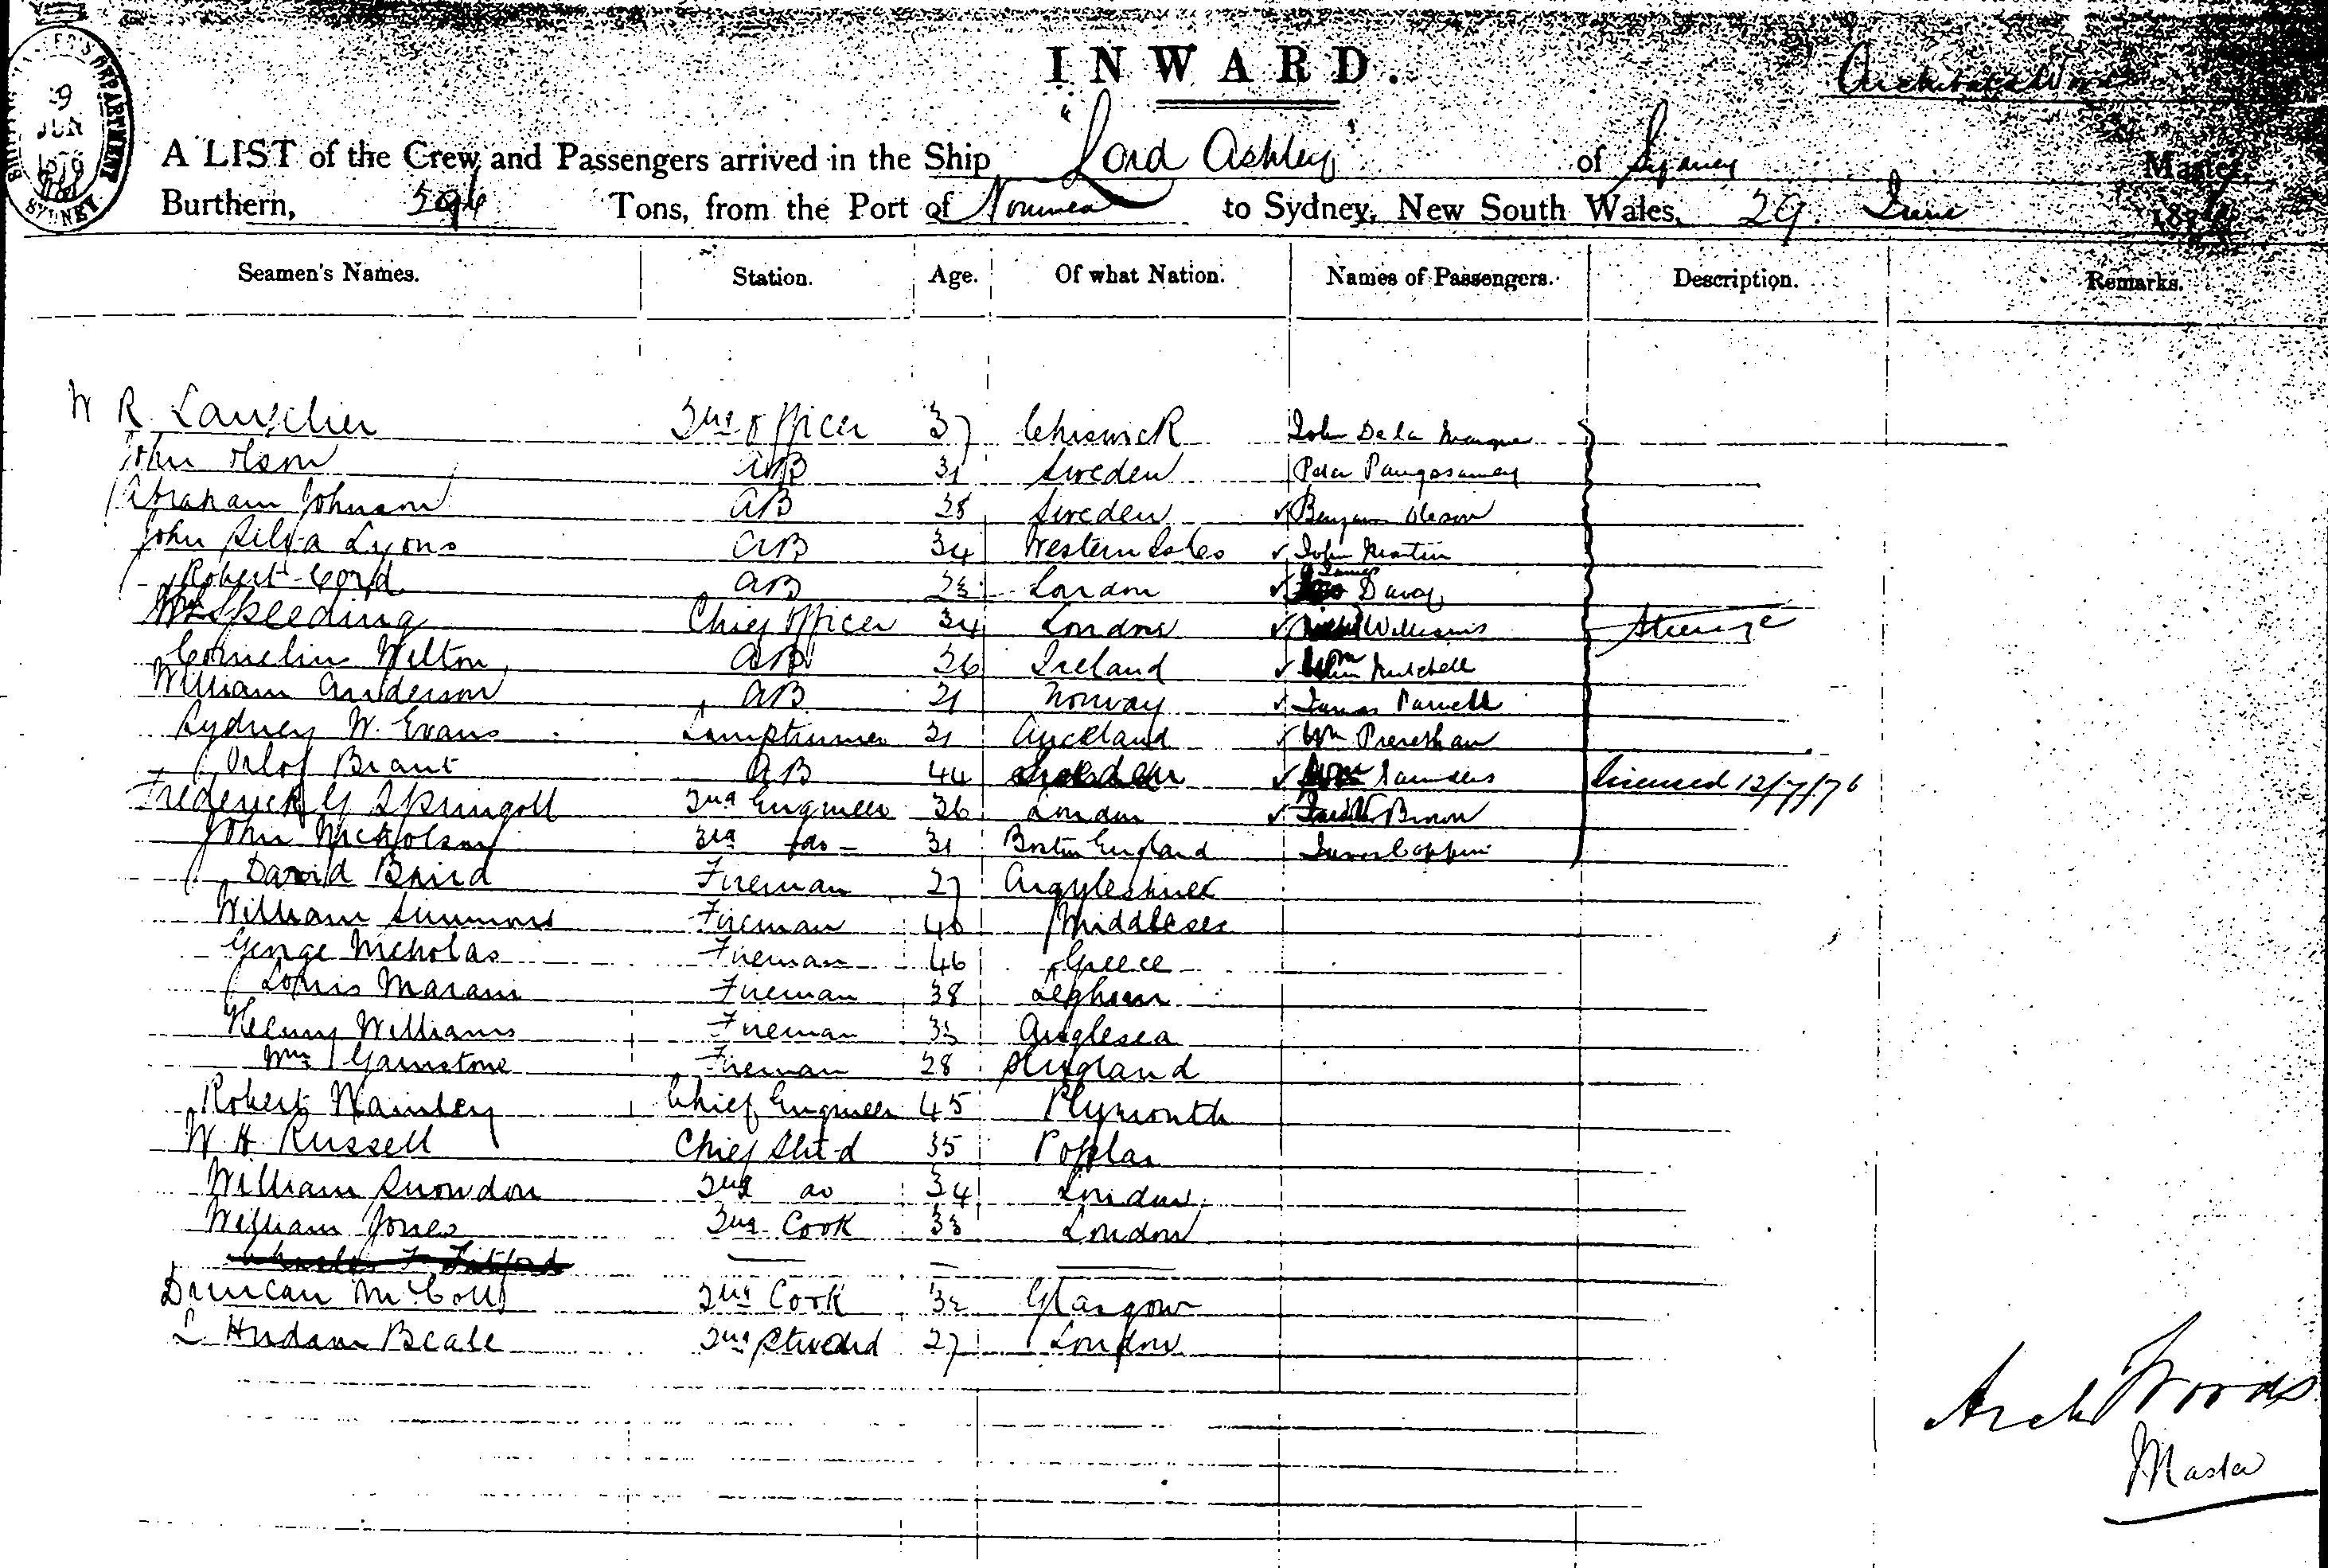 INWARD.
Archibald Woods
A LIST of the Crew and Passengers arrived in the Ship "Lord Ashley" of Sydney Master,
Burthern, 296 Tons, from the Port of Noumea to Sydney, New South Wales, 29 June 1876
Seamen's Names. Station. Age. Of what Nation. Names of Passengers. Description. Remarks.
W R 2nd Officer 37 Chiswick John De la
John Olson AB 31 Sweden Peter
Abraham Johnson AB 28 Sweden Oleson
John Silva Lyons AB 34 Western Isles John Martin
Robert AB 23 London James Davey
Wm Speeding Chief Officer 34 London Williams Steerage
Cornelius Welton AB 26 Ireland Wm Mitchell
William Anderson AB 21 Norway James
Sydney W. Evans Lamptrimmer 21 Auckland Wm
Orlof Brant AB 44 Sweden Saunders 12/7/76
Frederick G Springall 2nd Engineer 36 London Brown
John Nicholson 3rd do 31 Boston England James Coppin
David Baird Fireman 27 Argyleshire
William Simmons Fireman 40 Middlesex
George Nicholas Fireman 46 Greece
Louis Marani Fireman 38 Leghorn
Henry Williams Fireman 33 Anglesea
Wm Garnstone Fireman 28 England
Robert Chief Engineer 45 Plymouth
W H Russell Chief Std 35 Poplar
William Snowdon 2nd do 34 London
William Jones 2nd Cook 33 London
Duncan McColl 2nd Cook 32 Glasgow
L Hudson Beale 2nd Steward 27 London
Arch Woods
Master